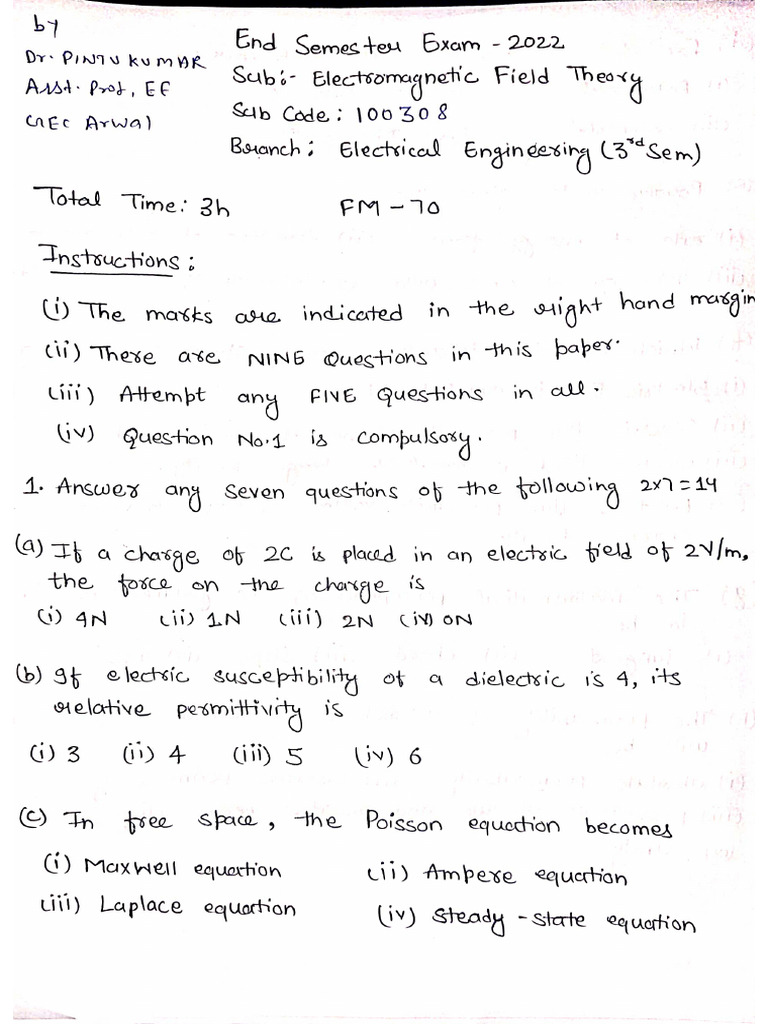 by
Dr. PINTU KUMAR
Asst. Prof, EE
GEC Arwal
End Semester Exam - 2022
Sub:- Electromagnetic Field Theory
Sub Code: 100308
Branch: Electrical Engineering (3rd Sem)
Total Time: 3h FM - 70
Instructions:
(i) The marks are indicated in the right hand margin
(ii) There are NINE Questions in this paper.
(iii) Attempt any FIVE Questions in all.
(iv) Question No.1 is compulsory.
1. Answer any seven questions of the following 2x7=14
(a) If a charge of 2C is placed in an electric field of 2V/m,
the force on the charge is
(i) 4N (ii) 1N (iii) 2N (iv) 0N
(b) If electric susceptibility of a dielectric is 4, its
relative permittivity is
(i) 3 (ii) 4 (iii) 5 (iv) 6
(c) In free space, the Poisson equation becomes
(i) Maxwell equation (ii) Ampere equation
(iii) Laplace equation (iv) Steady-state equation